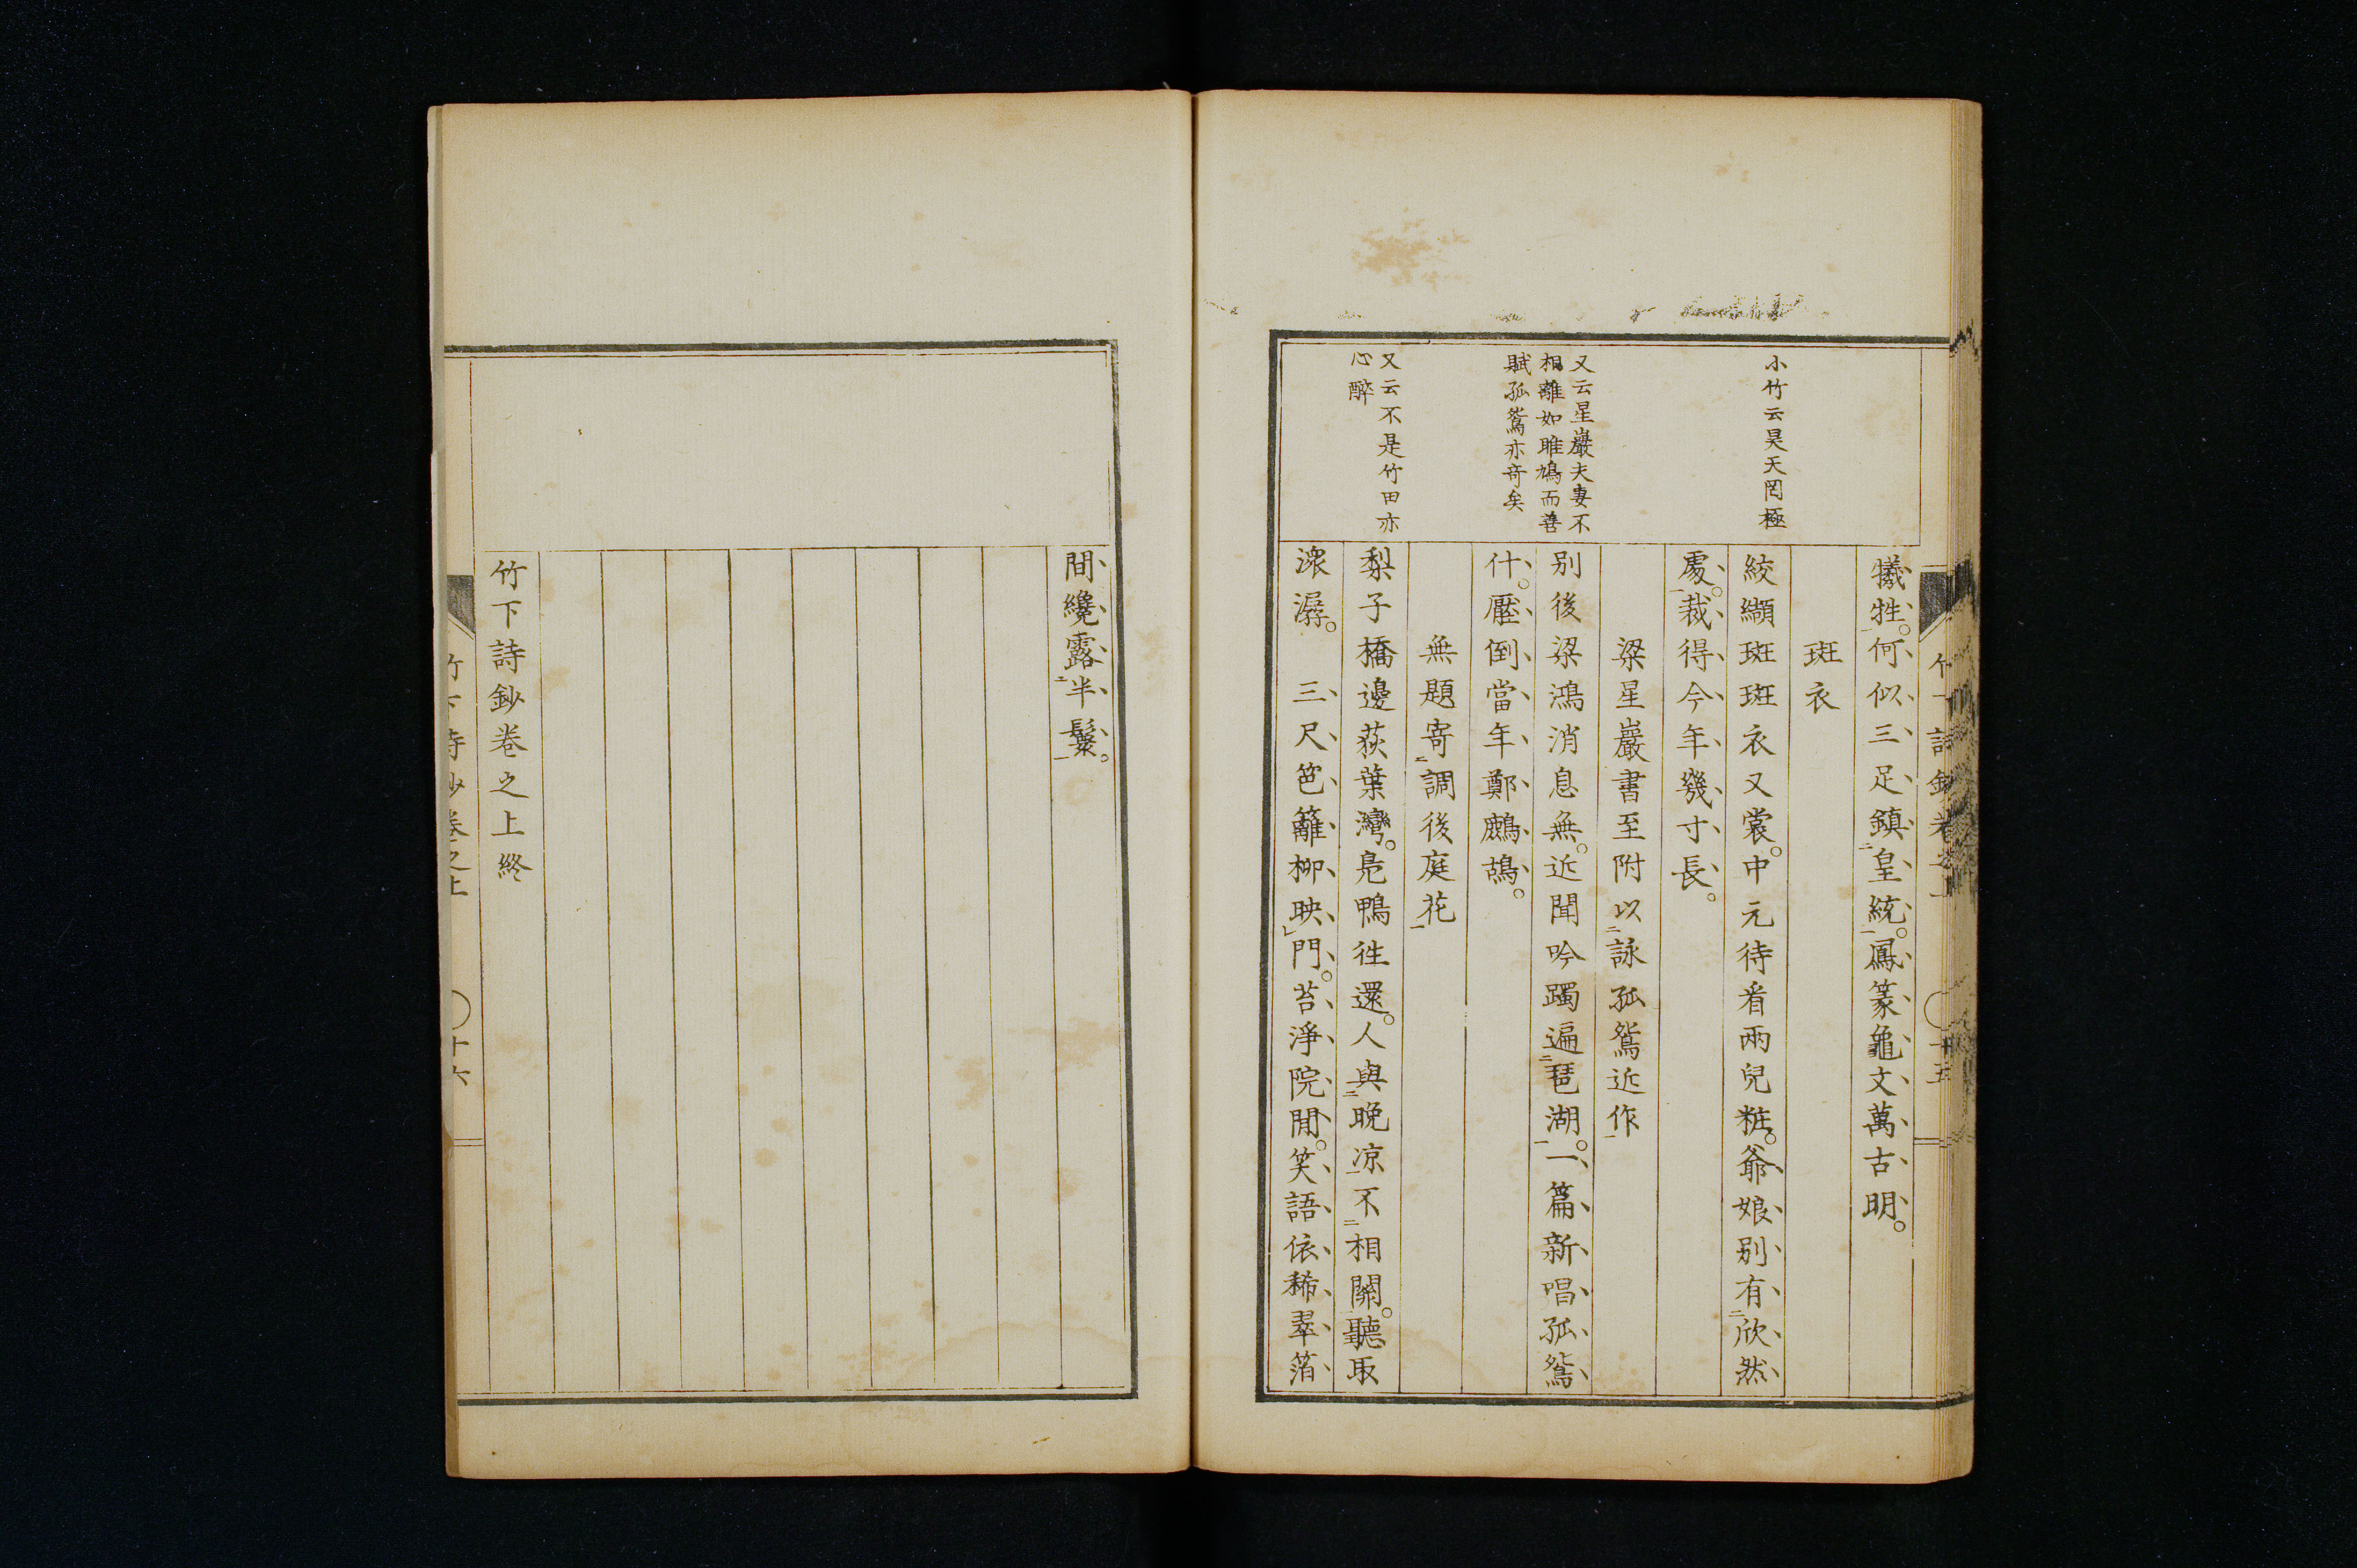 小竹云昊天罔極
又云星巖夫妻不
相離如雎鳩而善
賦孤鴛亦奇矣
又云不是竹田亦
心醉
犧牲。何似三足鎮皇統。鳳篆龜文萬古明。
斑衣
絞纈斑斑衣又裳。中元待看兩兒粧。爺娘別有欣然
處。裁得今年幾寸長。
梁星巖書至附以詠孤鴛近作
別後梁鴻消息無。近聞吟躅遍琵湖。一篇新唱孤鴛
什。壓倒當年鄭鷓鴣。
無題寄調後庭花
梨子橋邊荻葉灣。鳧鴨往還。人與晚凉不相關。聽取
潨潺。三尺笆籬柳映門。苔淨院閒。笑語依稀翠箔
間纔露半鬟。
竹下詩鈔卷之上終
竹下詩鈔卷之上
十六
竹下詩鈔卷之上
十五